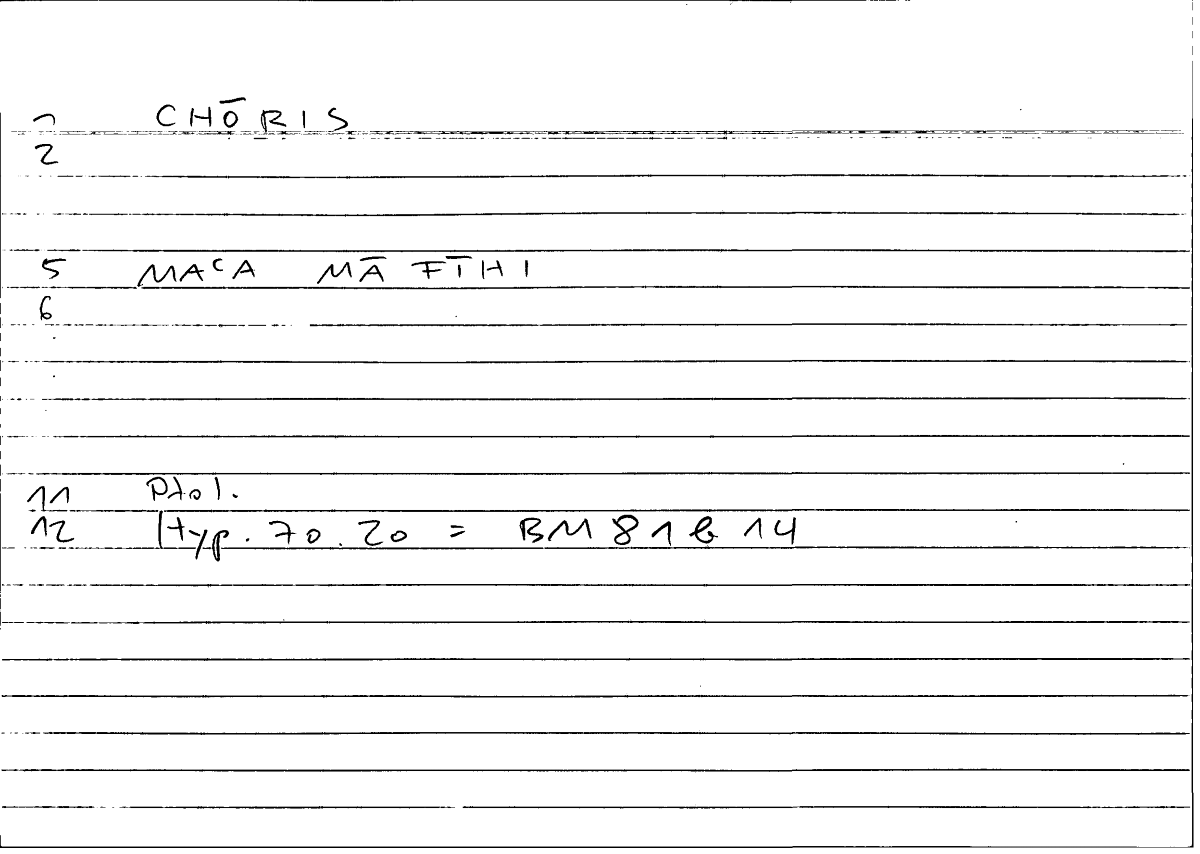 1 CHŌRIS
2
5 MAᶜA MĀ FṬHI
6
11 Ptol.
12 Hyp. 70.20 = BM 81 b 14